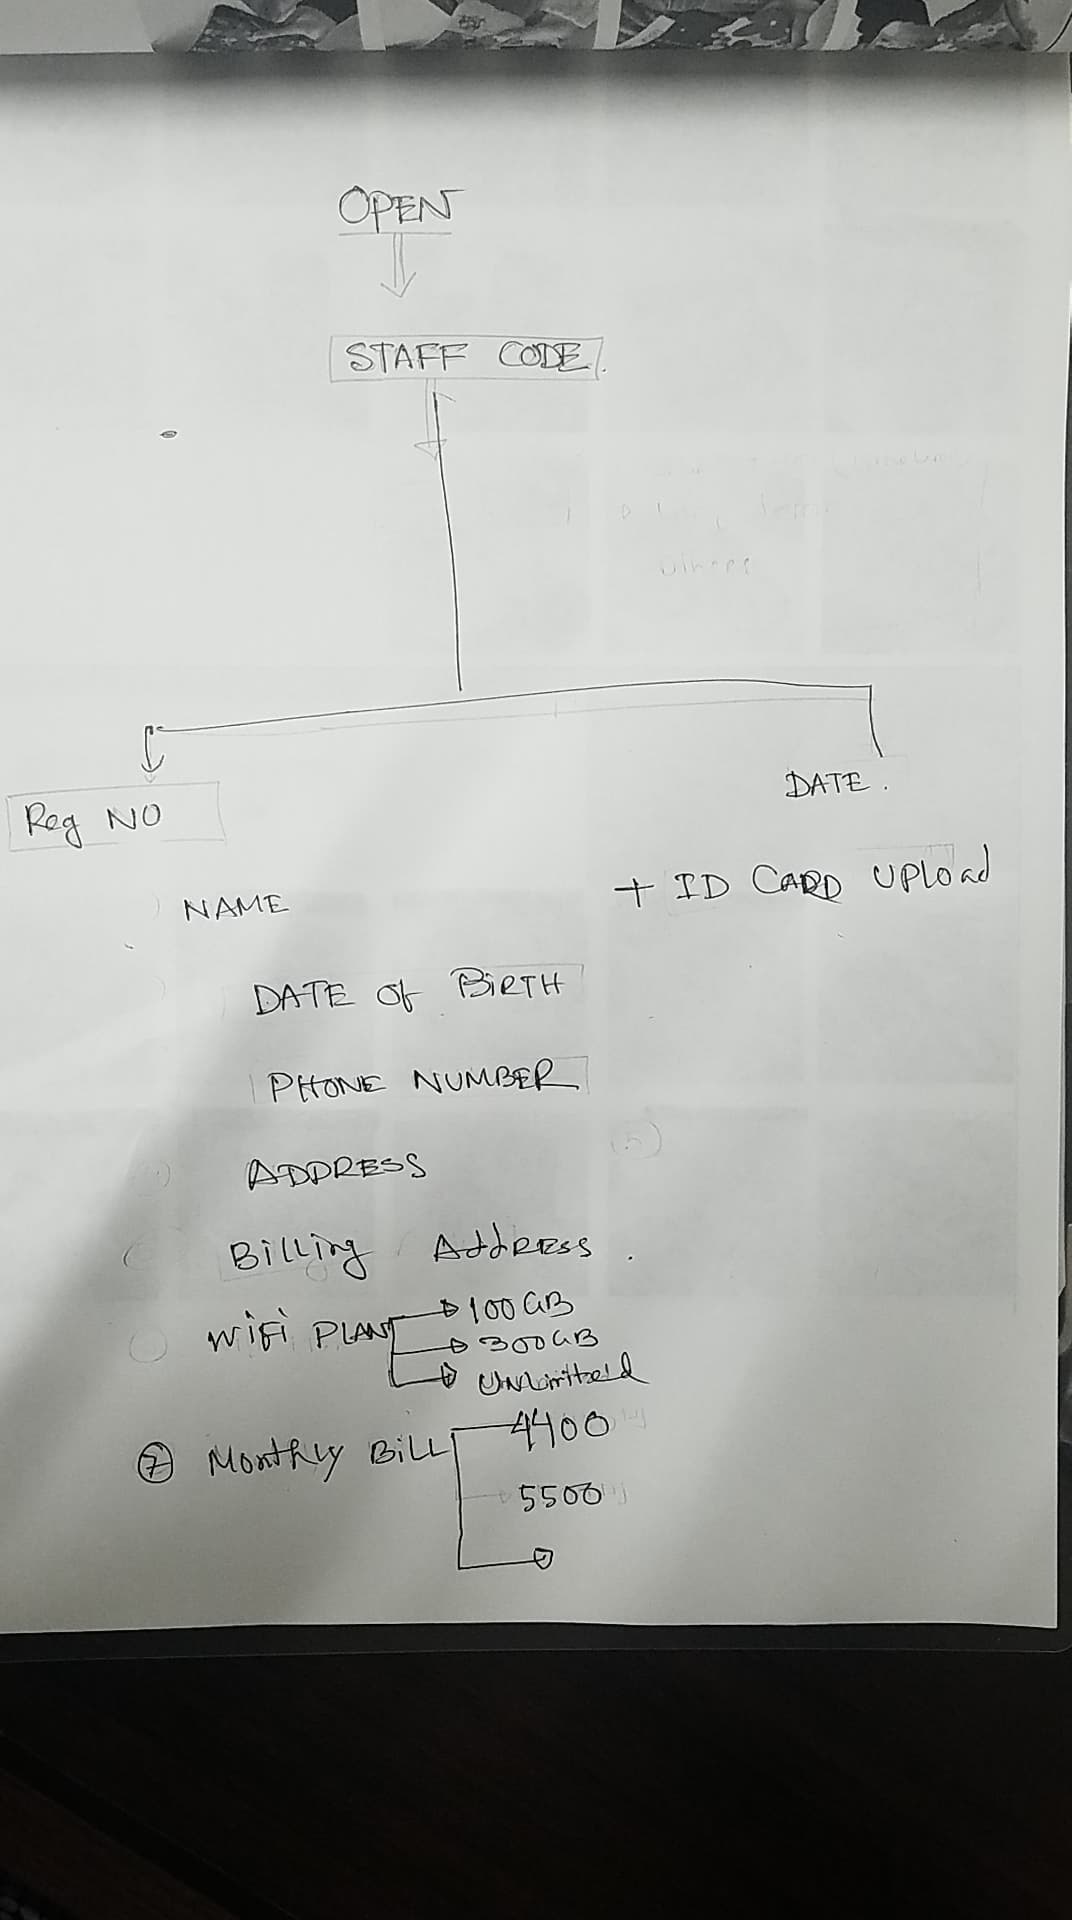 OPEN
STAFF CODE.
DATE.
Reg NO
+ ID CARD UPLoad
NAME
DATE of BiRTH
PHONE NUMBER
ADDRESS
Billing AddRESS.
WiFi PLAN 100 GB
300 GB
UNLimiteld
⑦ Monthly BiLL 4400
5500